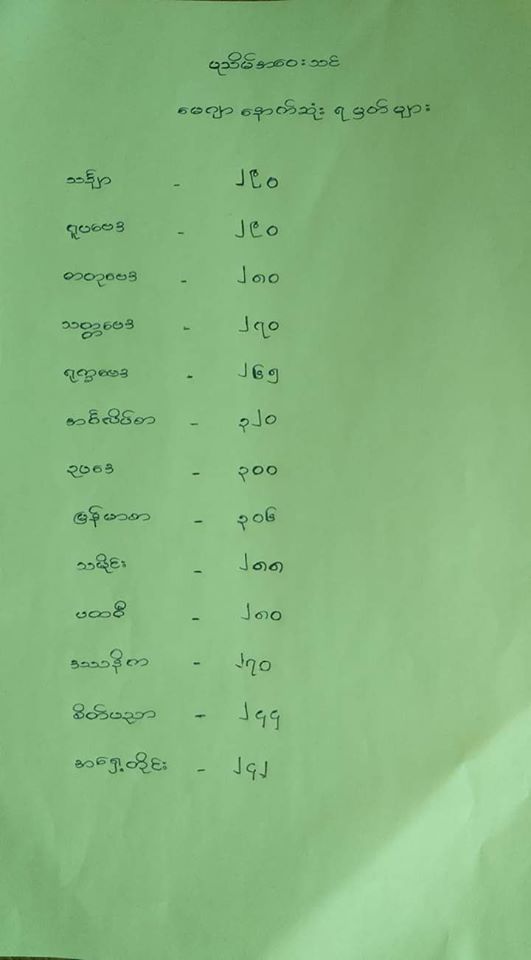 ပုသိမ်အဝေးသင်
မေဂျာ နောက်ဆုံး ရ မှတ် များ
သင်္ချာ - ၂၉၀
ရူပဗေဒ - ၂၉၀
ဓာတုဗေဒ - ၂၈၀
သတ္တဗေဒ - ၂၇၀
ရုက္ခဗေဒ - ၂၆၅
အင်္ဂလိပ်စာ - ၃၂၀
ဥပဒေ - ၃၀၀
မြန်မာစာ - ၃၀၆
သမိုင်း - ၂၈၈
ပထဝီ - ၂၈၀
ဒဿနိက - ၂၇၀
စိတ်ပညာ - ၂၄၄
အရှေ့တိုင်း - ၂၄၂